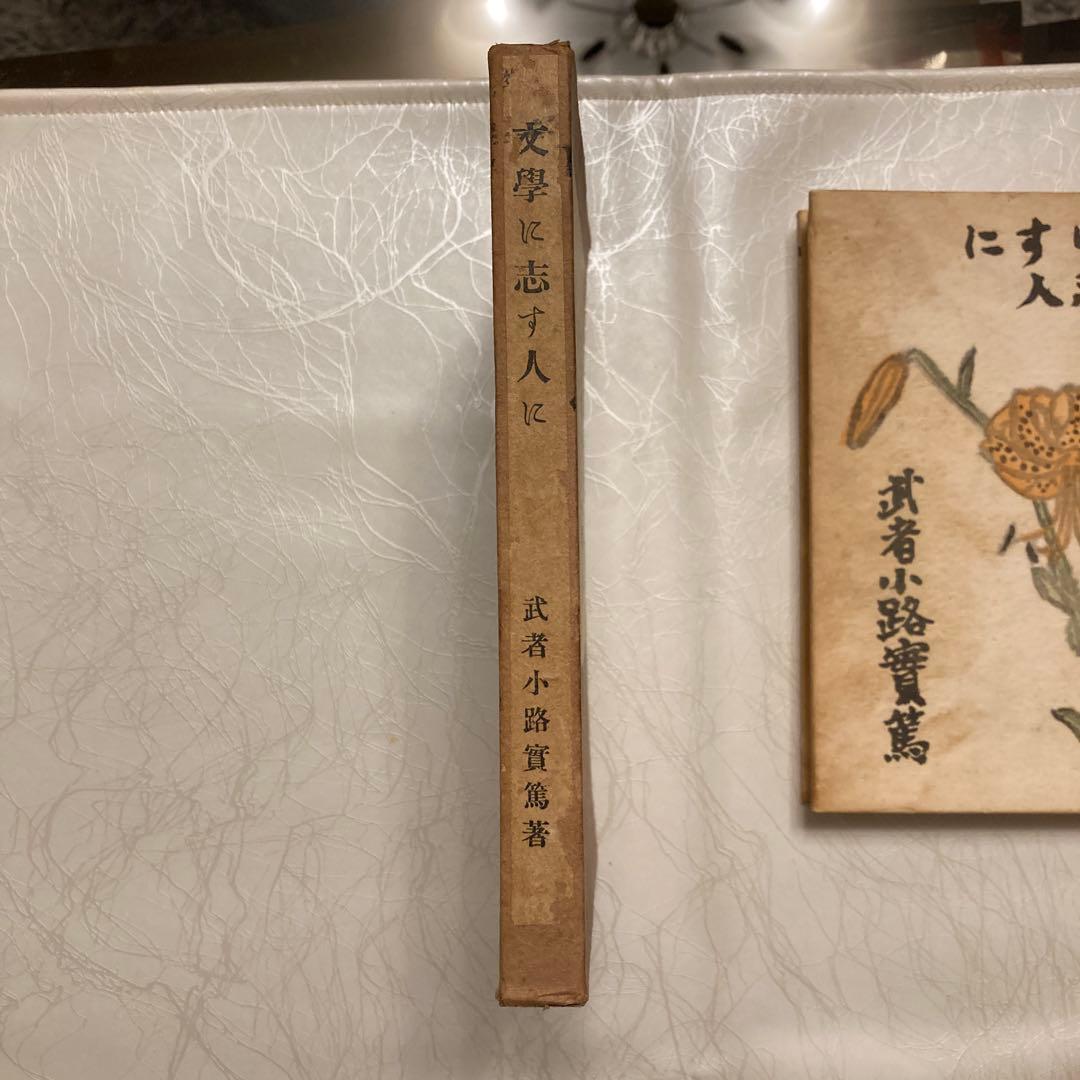 文學に志す人に
武者小路實篤著
す人
に
武者小路實篤